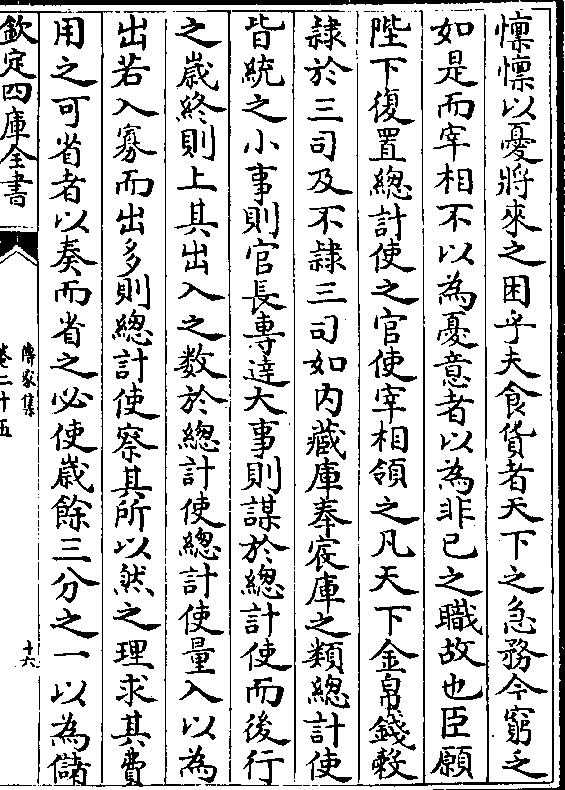 懍懍以憂將來之困乎夫食貨者天下之急務今窮之
如是而宰相不以為憂意者以為非已之職故也臣願
陛下復置總計使之官使宰相領之凡天下金帛錢穀
隷於三司及不隷三司如内藏庫奉宸庫之類總計使
皆統之小事則官長專達大事則謀於總計使而後行
之歲終則上其出入之數於總計使總計使量入以為
出若入寡而出多則總計使察其所以然之理求其費
用之可省者以奏而省之必使歲餘三分之一以為儲
欽定四庫全書
傳家集
卷二十五
十六